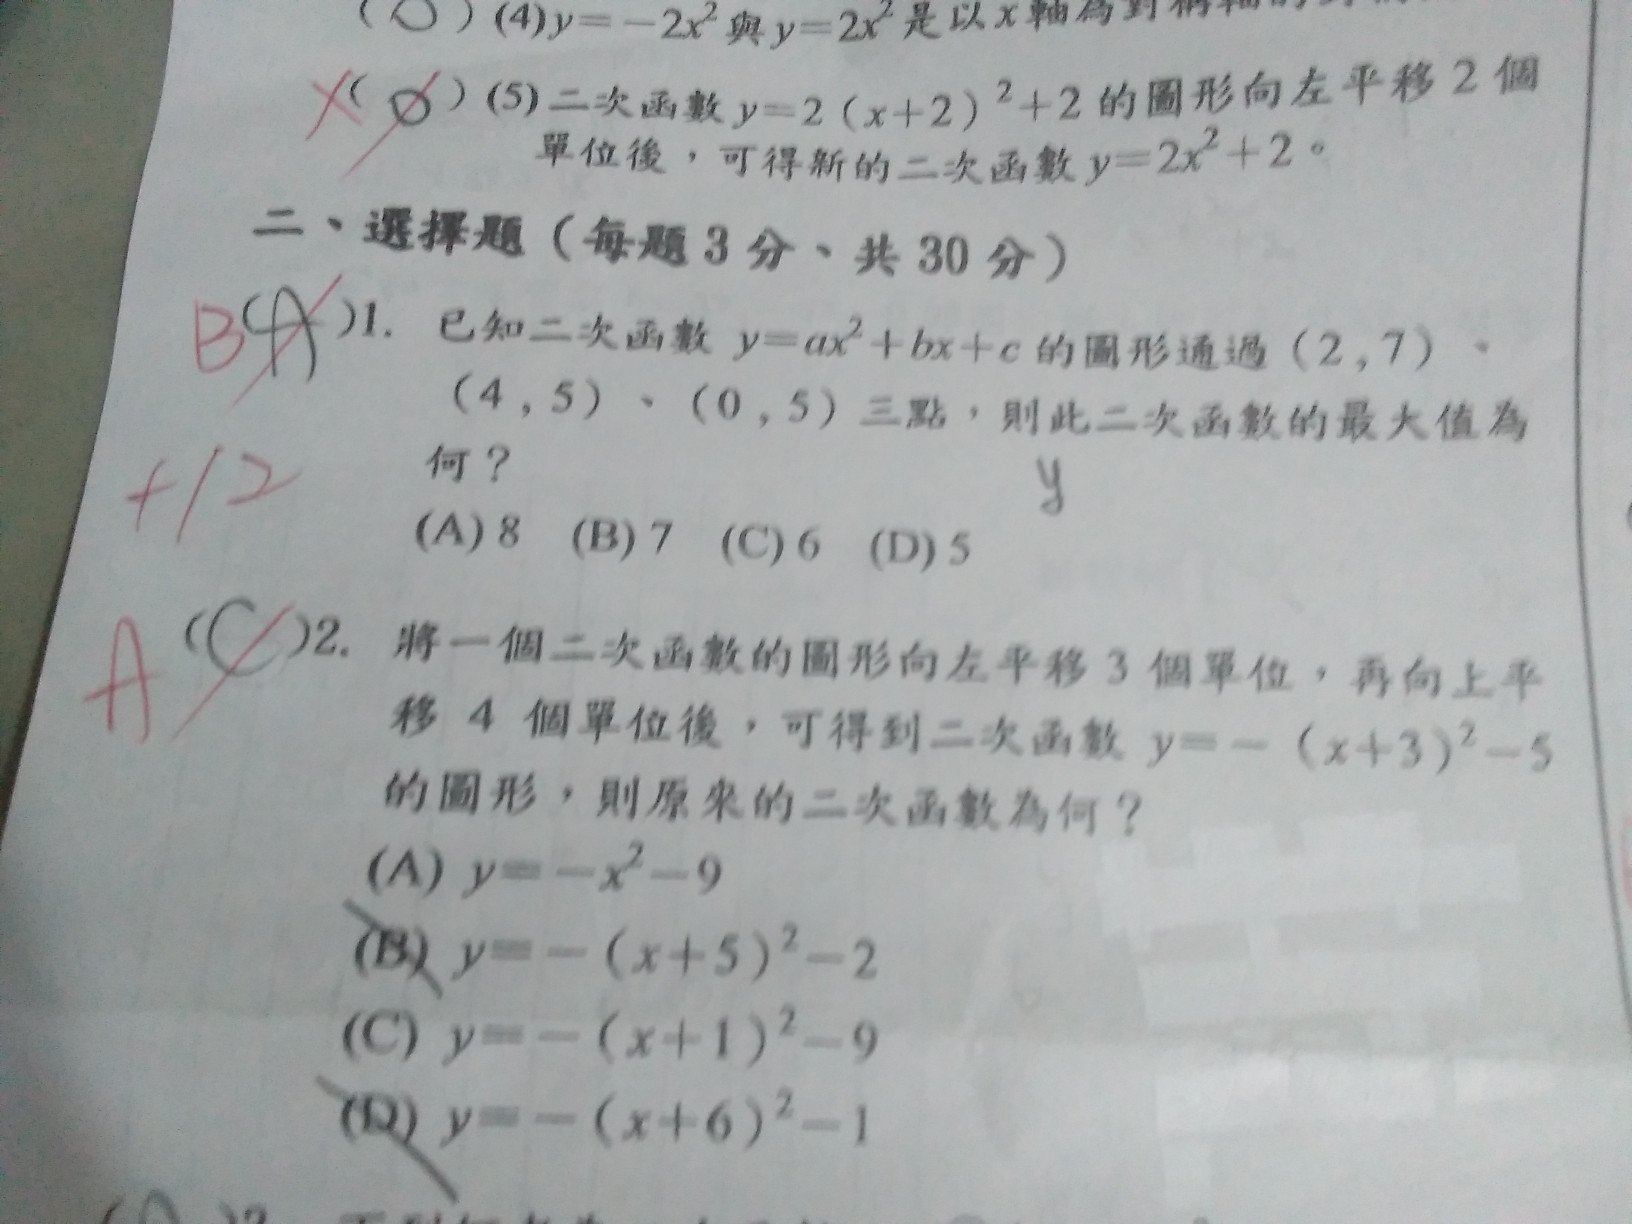 (O) (4) y=-2x²與y=2x²是以x軸為對稱軸的
X(O) (5) 二次函數 y=2(x+2)²+2 的圖形向左平移 2 個
單位後，可得新的二次函數 y=2x²+2。
二、選擇題（每題 3 分、共 30 分）
B(A)1. 已知二次函數 y=ax²+bx+c 的圖形通過（2,7）、
（4,5）、（0,5）三點，則此二次函數的最大值為
何？
y
+12
(A) 8 (B) 7 (C) 6 (D) 5
A(C)2. 將一個二次函數的圖形向左平移 3 個單位，再向上平
移 4 個單位後，可得到二次函數 y=-(x+3)²-5
的圖形，則原來的二次函數為何？
(A) y=-x²-9
(B) y=-(x+5)²-2
(C) y=-(x+1)²-9
(D) y=-(x+6)²-1